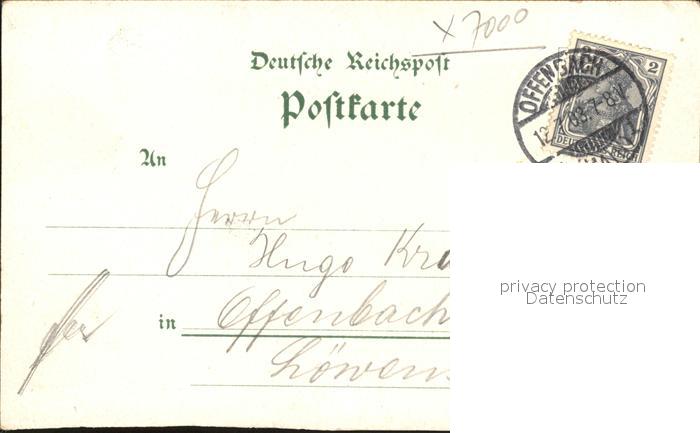 x 7000
Deutsche Reichspost
Postkarte
2
OFFENBACH
DEUTSCHES REICH
An
Herrn
Hugo
in Offenbach
privacy protection
Datenschutz